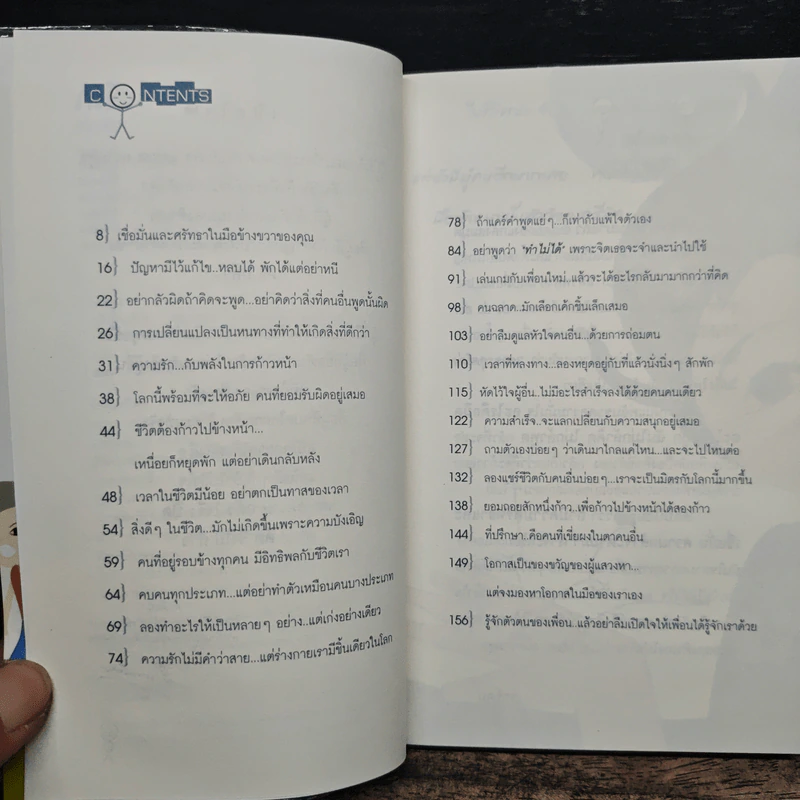 CONTENTS
8} เชื่อมั่นและศรัทธาในมือข้างขวาของคุณ
16} ปัญหามีไว้แก้ไข..หลบได้ พักได้แต่อย่าหนี
22} อย่ากลัวผิดถ้าคิดจะพูด...อย่าคิดว่าสิ่งที่คนอื่นพูดนั้นผิด
26} การเปลี่ยนแปลงเป็นหนทางที่ทำให้เกิดสิ่งที่ดีกว่า
31} ความรัก...กับพลังในการก้าวหน้า
38} โลกนี้พร้อมที่จะให้อภัย คนที่ยอมรับผิดอยู่เสมอ
44} ชีวิตต้องก้าวไปข้างหน้า...
เหนื่อยก็หยุดพัก แต่อย่าเดินกลับหลัง
48} เวลาในชีวิตมีน้อย อย่าตกเป็นทาสของเวลา
54} สิ่งดีๆ ในชีวิต...มักไม่เกิดขึ้นเพราะความบังเอิญ
59} คนที่อยู่รอบข้างทุกคน มีอิทธิพลกับชีวิตเรา
64} คบคนทุกประเภท...แต่อย่าทำตัวเหมือนคนบางประเภท
69} ลองทำอะไรให้เป็นหลายๆ อย่าง..แต่เก่งอย่างเดียว
74} ความรักไม่มีคำว่าสาย...แต่ร่างกายเรามีชิ้นเดียวในโลก
78} ถ้าแคร์คำพูดแย่ๆ...ก็เท่ากับแพ้ใจตัวเอง
84} อย่าพูดว่า 'ทำไม่ได้' เพราะจิตเธอจะจำและนำไปใช้
91} เล่นเกมกับเพื่อนใหม่..แล้วจะได้อะไรกลับมามากกว่าที่คิด
98} คนฉลาด..มักเลือกเค้กชิ้นเล็กเสมอ
103} อย่าลืมดูแลหัวใจคนอื่น...ด้วยการถ่อมตน
110} เวลาที่หลงทาง...ลองหยุดอยู่กับที่แล้วนั่งนิ่งๆ สักพัก
115} หัดไว้ใจผู้อื่น...ไม่มีอะไรสำเร็จลงได้ด้วยคนคนเดียว
122} ความสำเร็จ..จะแลกเปลี่ยนกับความสนุกอยู่เสมอ
127} ถามตัวเองบ่อยๆ ว่าเดินมาไกลแค่ไหน...และจะไปไหนต่อ
132} ลองแชร์ชีวิตกับคนอื่นบ่อยๆ...เราจะเป็นมิตรกับโลกนี้มากขึ้น
138} ยอมถอยสักหนึ่งก้าว..เพื่อก้าวไปข้างหน้าได้สองก้าว
144} ที่ปรึกษา..คือคนที่เขี่ยผงในตาคนอื่น
149} โอกาสเป็นของขวัญของผู้แสวงหา...
แต่จงมองหาโอกาสในมือของเราเอง
156} รู้จักตัวตนของเพื่อน...แล้วอย่าลืมเปิดใจให้เพื่อนได้รู้จักเราด้วย